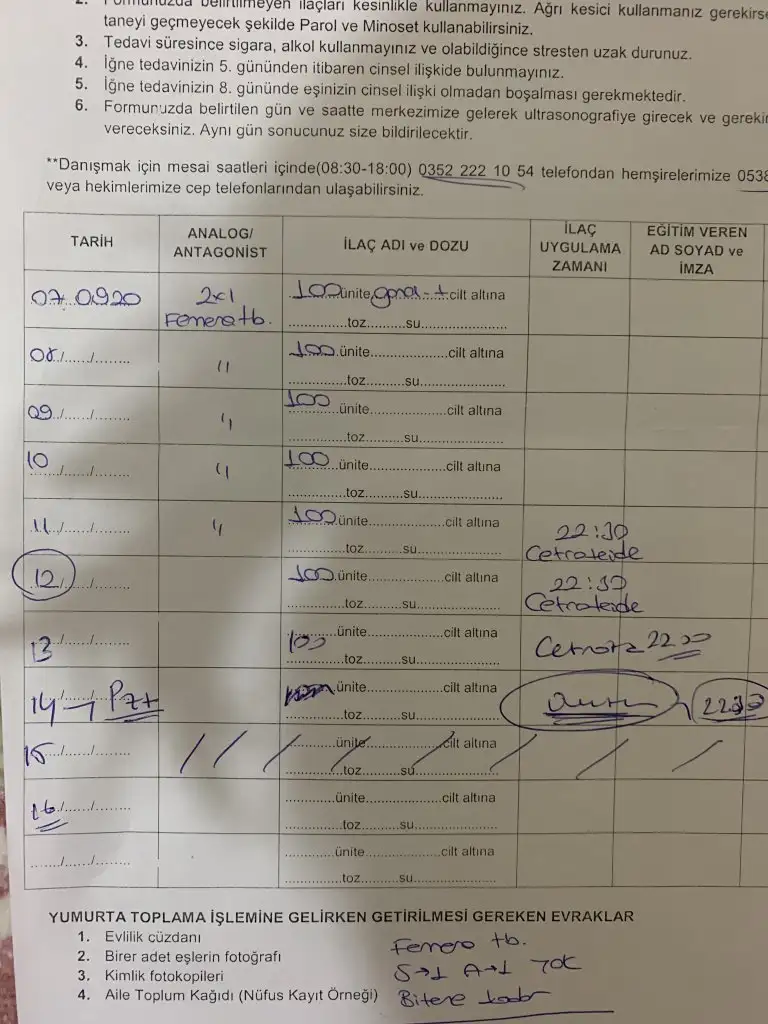 2. Formunuzda belirtilmeyen ilaçları kesinlikle kullanmayınız. Ağrı kesici kullanmanız gerekirse
taneyi geçmeyecek şekilde Parol ve Minoset kullanabilirsiniz.
3. Tedavi süresince sigara, alkol kullanmayınız ve olabildiğince stresten uzak durunuz.
4. İğne tedavinizin 5. gününden itibaren cinsel ilişkide bulunmayınız.
5. İğne tedavinizin 8. gününde eşinizin cinsel ilişki olmadan boşalması gerekmektedir.
6. Formunuzda belirtilen gün ve saatte merkezimize gelerek ultrasonografiye girecek ve gerekir
vereceksiniz. Aynı gün sonucunuz size bildirilecektir.
**Danışmak için mesai saatleri içinde(08:30-18:00) 0352 222 10 54 telefondan hemşirelerimize 0538
veya hekimlerimize cep telefonlarından ulaşabilirsiniz.
TARİH ANALOG/ANTAGONİST İLAÇ ADI ve DOZU İLAÇ UYGULAMA ZAMANI EĞİTİM VEREN AD SOYAD ve İMZA
07.09.20 2x1 100 ünite gonal-f cilt altına
Femera tb. ...toz...su...
08./....../........ " 100 ünite...cilt altına
...toz...su...
09../....../........ " 100 ünite...cilt altına
...toz...su...
10 ../....../........ " 100 ünite...cilt altına
...toz...su...
11../....../........ " 100 ünite...cilt altına 22:30
...toz...su... Cetrotide
12../....../........ 100 ünite...cilt altına 22:30
...toz...su... Cetrotide
13../....../........ 100 ünite...cilt altına Cetrota 22 30
...toz...su...
14 → Pzt ünite...cilt altına 2230
...toz...su...
15../....../........ / / / ünite...cilt altına / / /
...toz...su...
16./....../........ ...ünite...cilt altına
...toz...su...
......./....../........ ...ünite...cilt altına
...toz...su...
YUMURTA TOPLAMA İŞLEMİNE GELİRKEN GETİRİLMESİ GEREKEN EVRAKLAR
1. Evlilik cüzdanı
2. Birer adet eşlerin fotoğrafı
3. Kimlik fotokopileri
4. Aile Toplum Kağıdı (Nüfus Kayıt Örneği)
Femera tb.
S→1 A→1 TOK
Bitene kadar